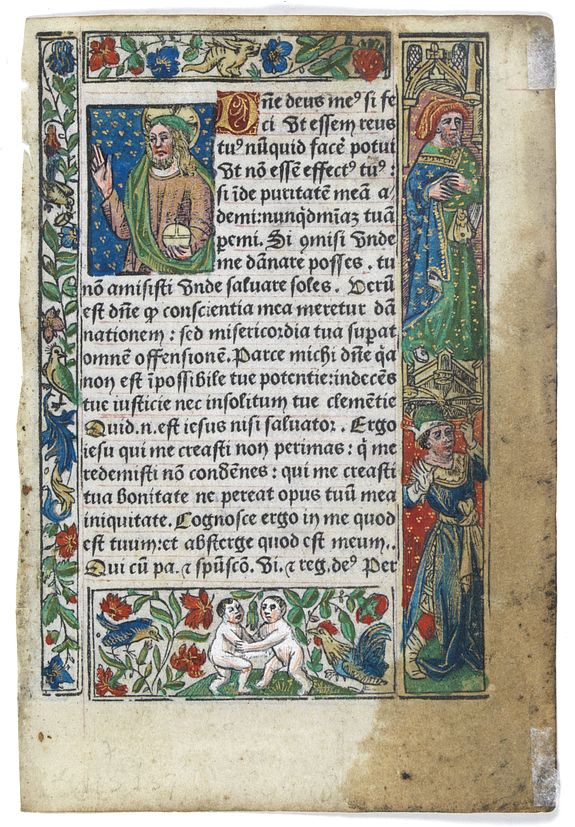 Dñe deus meꝰ si fe
ci Ut essem reus
tuꝰ nūquid facē potui
Ut nō essē effectꝰ tuꝰ :
si īde puritatē meā a/
demi:nunqd̄miāz tuā
pemi. Si qmisi Unde
me dānare posses. tu
nō amisisti Unde saluare soles. Verū
est dñe qꝫ conscientia mea meretur dā
nationem : sed misericordia tua supat
omnē offensionē. Parce michi dñe q̄a
non est īpossibile tue potentie:indecēs
tue iusticie nec insolitum tue clemētie
Quid.n.est iesus nisi saluator. Ergo
iesu qui me creasti non perimas: q̄ me
redemisti nō condēnes: qui me creasti
tua bonitate ne pereat opus tuū mea
iniquitate. Cognosce ergo in me quod
est tuum:et absterge quod est meum..
Qui cū pa. ⁊ spūscō. Vi. ⁊ reg. deꝰ Per